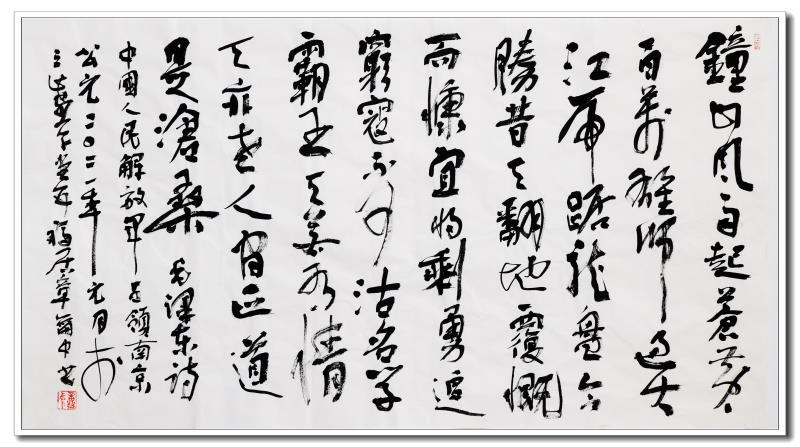 鐘山风雨起蒼黄
百萬雄师过大
江虎踞龙盘今
勝昔天翻地覆慨
而慷宜将剩勇追
窮寇不可沽名学
霸王天若有情
天亦老人间正道
是滄桑 毛澤东詩
中國人民解放军占領南京
公元二〇二一年元月於